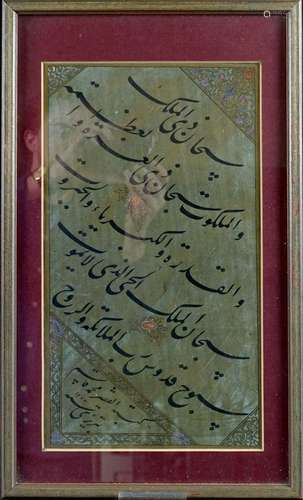 سبحان ذی الملک
والملکوت سبحان ذی العزة و العظمة
والقدرة والکبریاء والجبروت
سبحان الملک الحی الذی لا یموت
سبوح قدوس رب الملائکة والروح